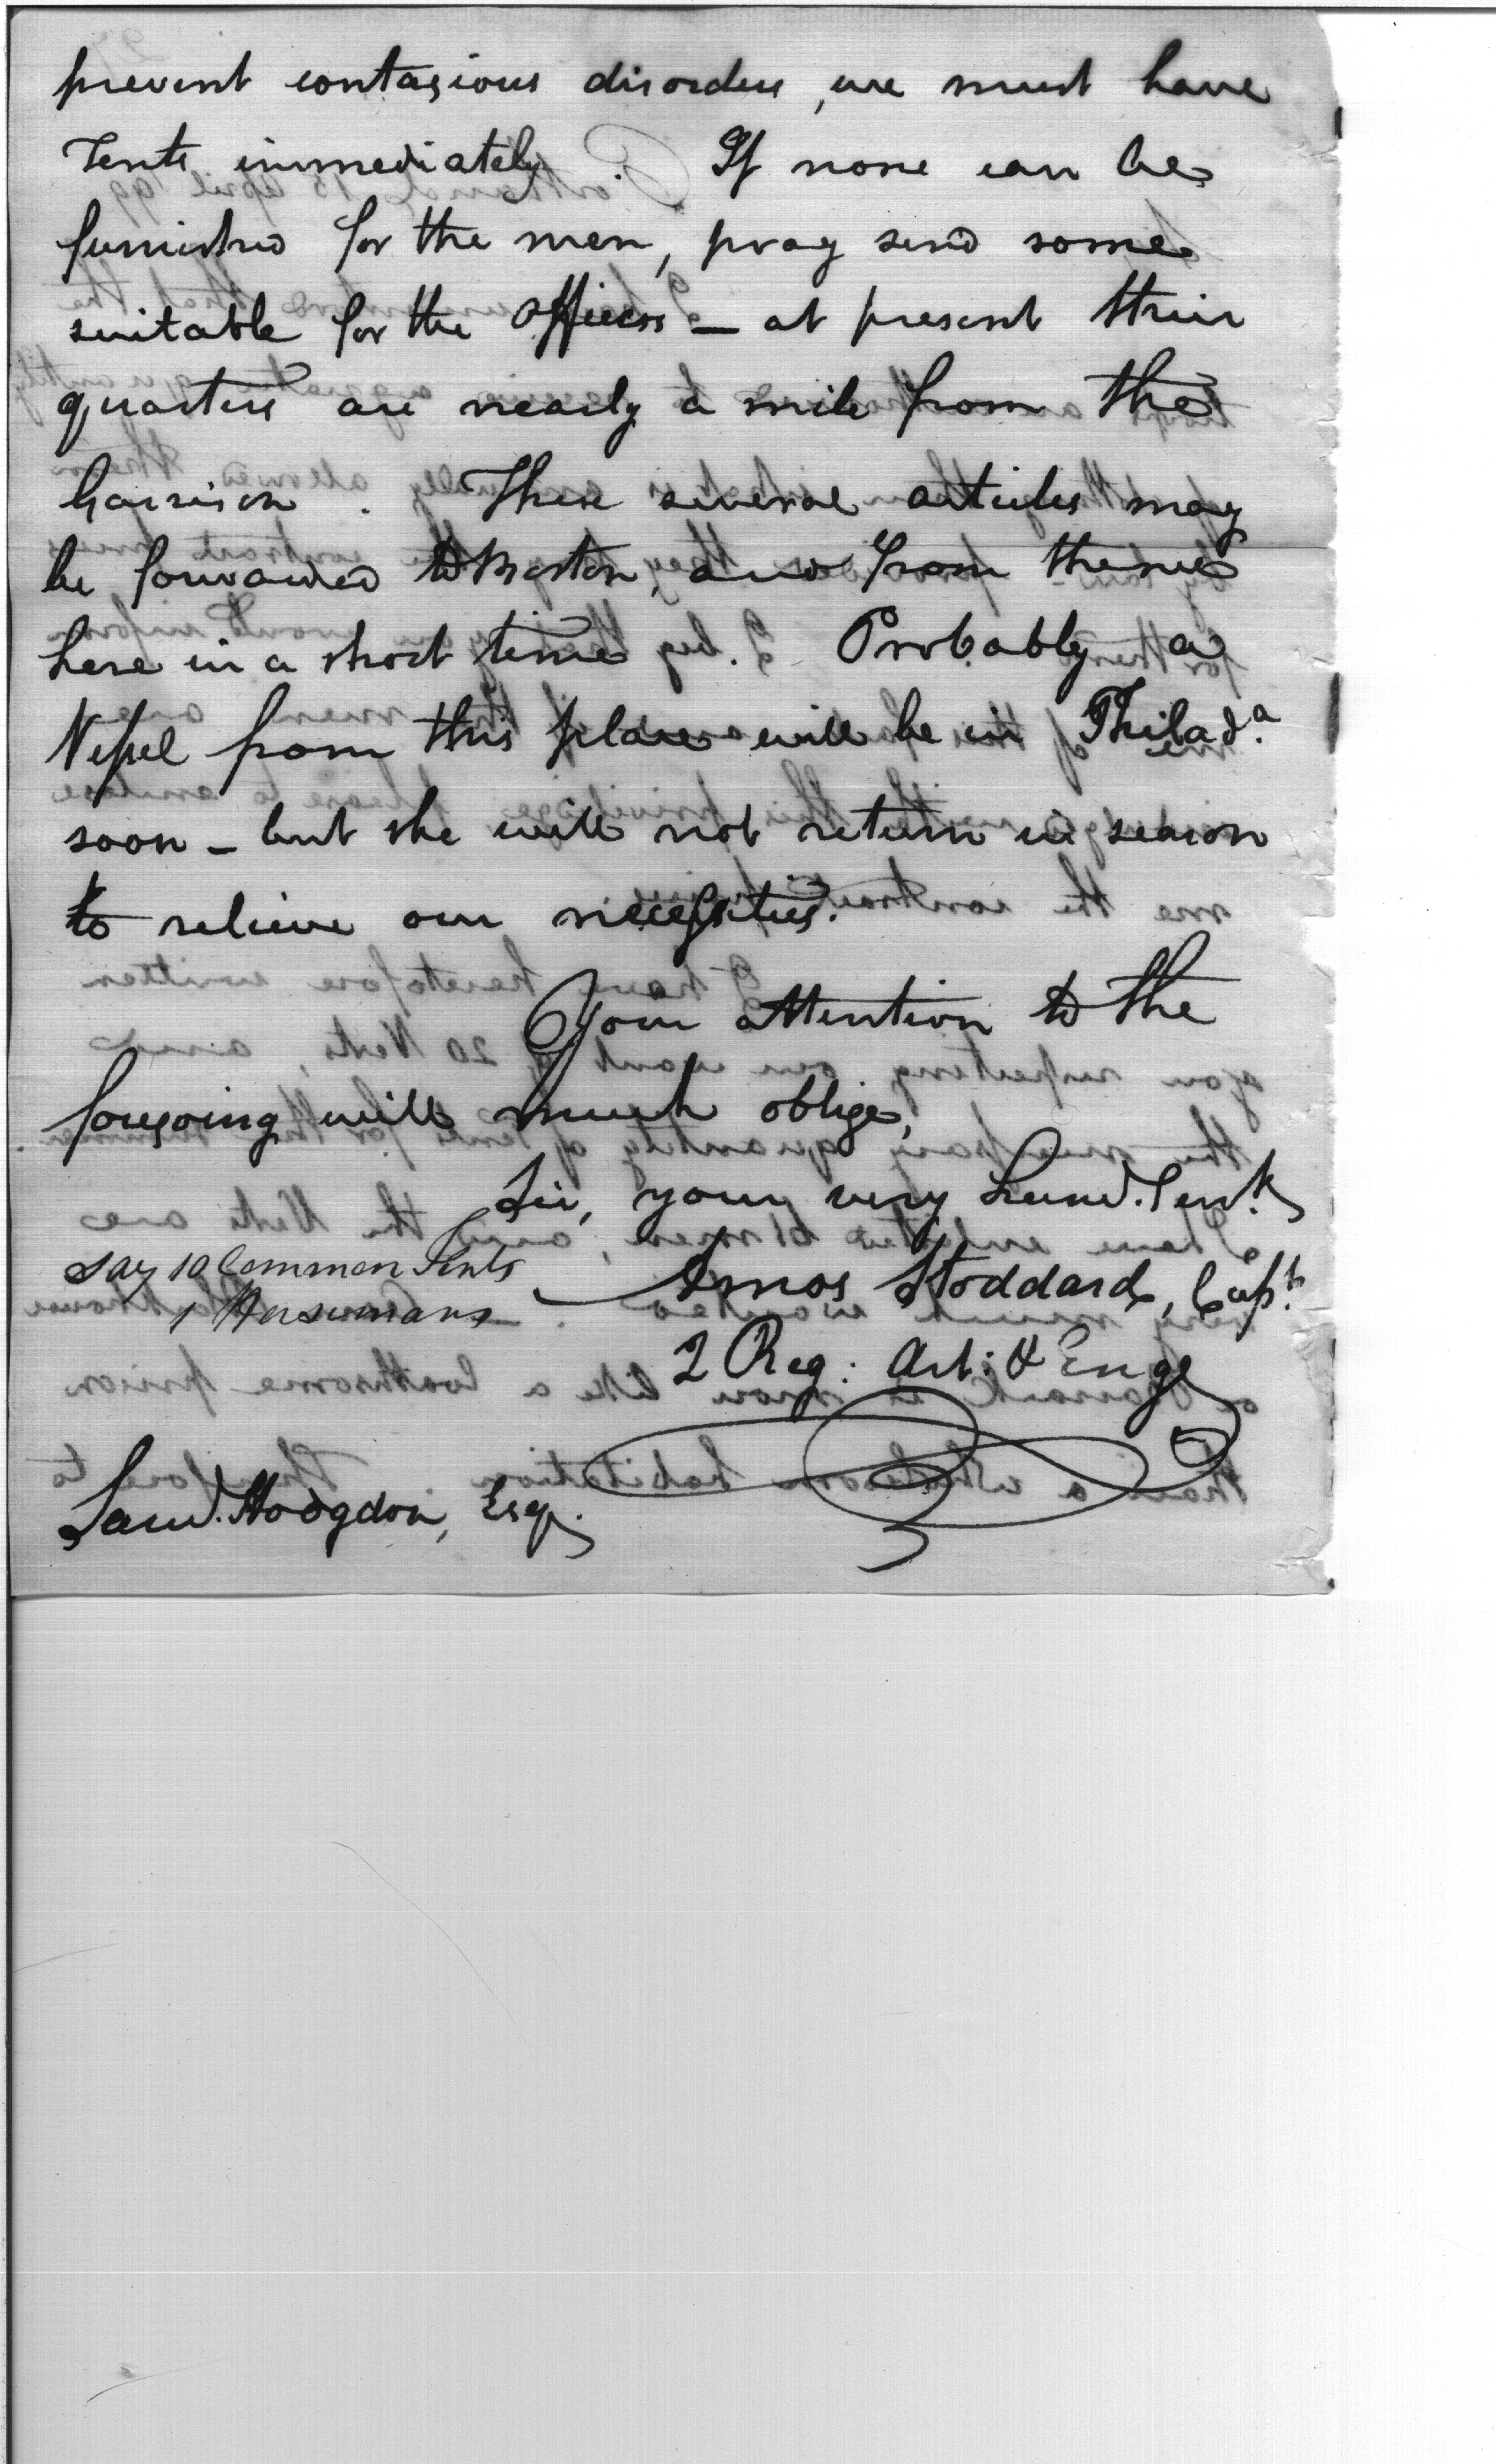 prevent contagious disorders, we must have
Tents immediately. If none can be
furnished for the men, pray send some
suitable for the Officers — at present their
quarters are nearly a mile from the
Garrison. These several articles may
be forwarded to Boston, and from thence
here in a short time. Probably a
Vessel from this place will be in Philad.a
soon — but she will not return in season
to relieve our necessities.
Your attention to the
foregoing will much oblige,
Sir, your very hum.l Serv.t
say 10 Common Tents
1 Horsemans
Amos Stoddard, Capt.
2 Reg: Art: & Eng
Sam.l Hodgdon, Esq.